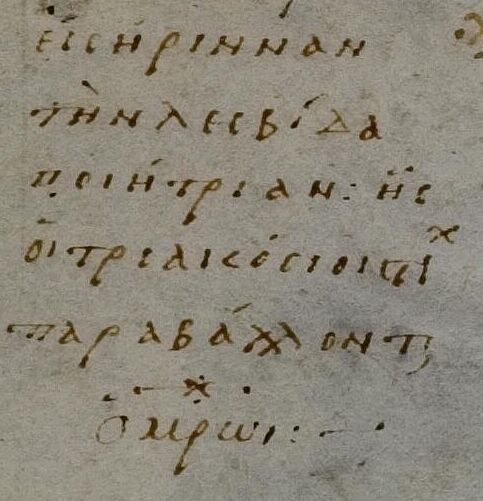 εἰς ἤρινναν
τὴν λεσβίδα
ποιήτριαν: ἧς
οἱ τριακόσιοι στίχ
παραβάλλοντ
ὁμήρωι: